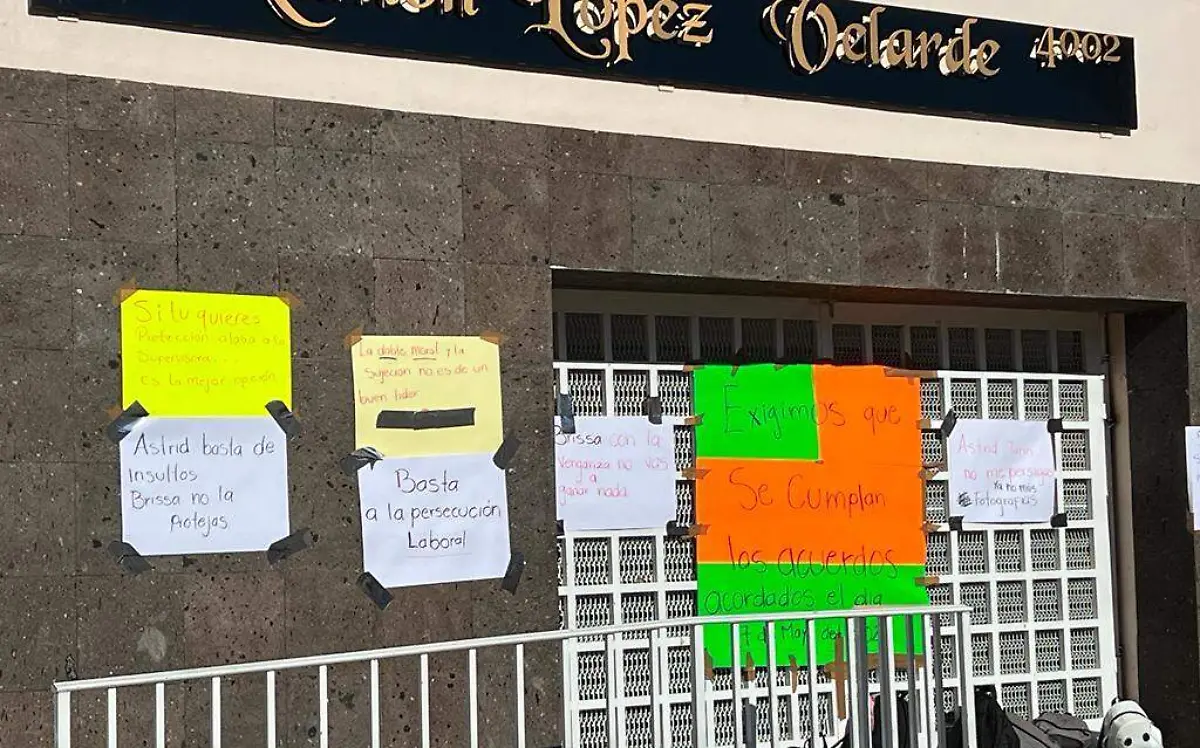 López Velarde 4002
Si tu quieres
Protección alaba a la
Supervisora...
Es la mejor opción
Astrid basta de
Insultos
Brissa no la
Protejas
La doble moral y la
Sujeción no es de un
buen lider
Basta
a la persecución
Laboral
Brissa con la
Venganza no vas
a
ganar nada
Exigimos que
Se Cumplan
los acuerdos
acordados el dia
7 de May del
Astrid
no me persigas
Ya no más
Fotografias